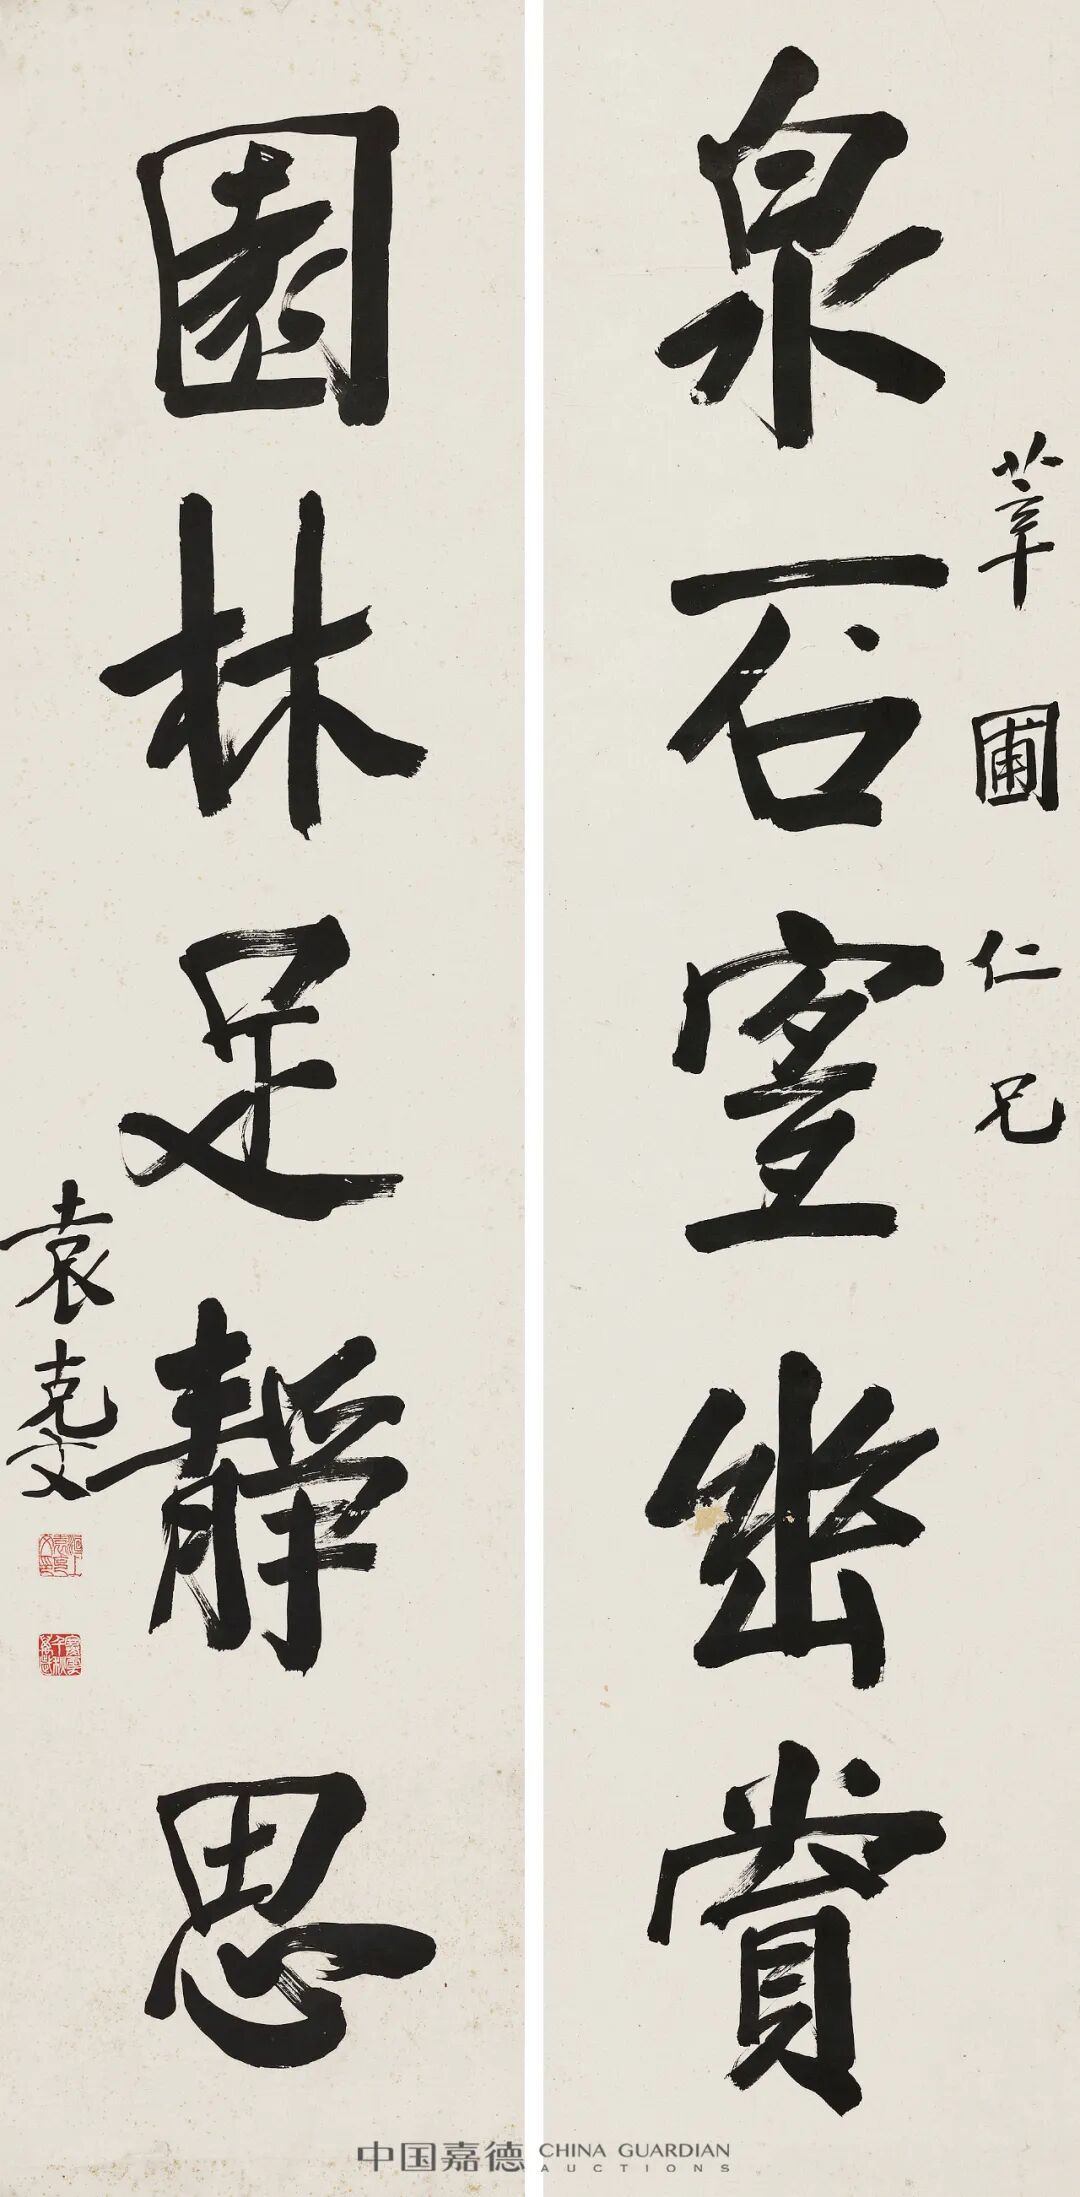 莘圃仁兄
泉石宜幽賞
園林足靜思
袁克文
中国嘉德 CHINA GUARDIAN
AUCTIONS